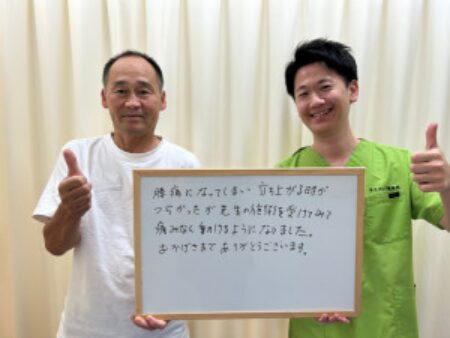 膝痛になってしまい 立ち上がる時が
つらかったが 先生の施術を受けてみて
痛みなく動けるようになりました。
おかげさまで ありがとうございます。